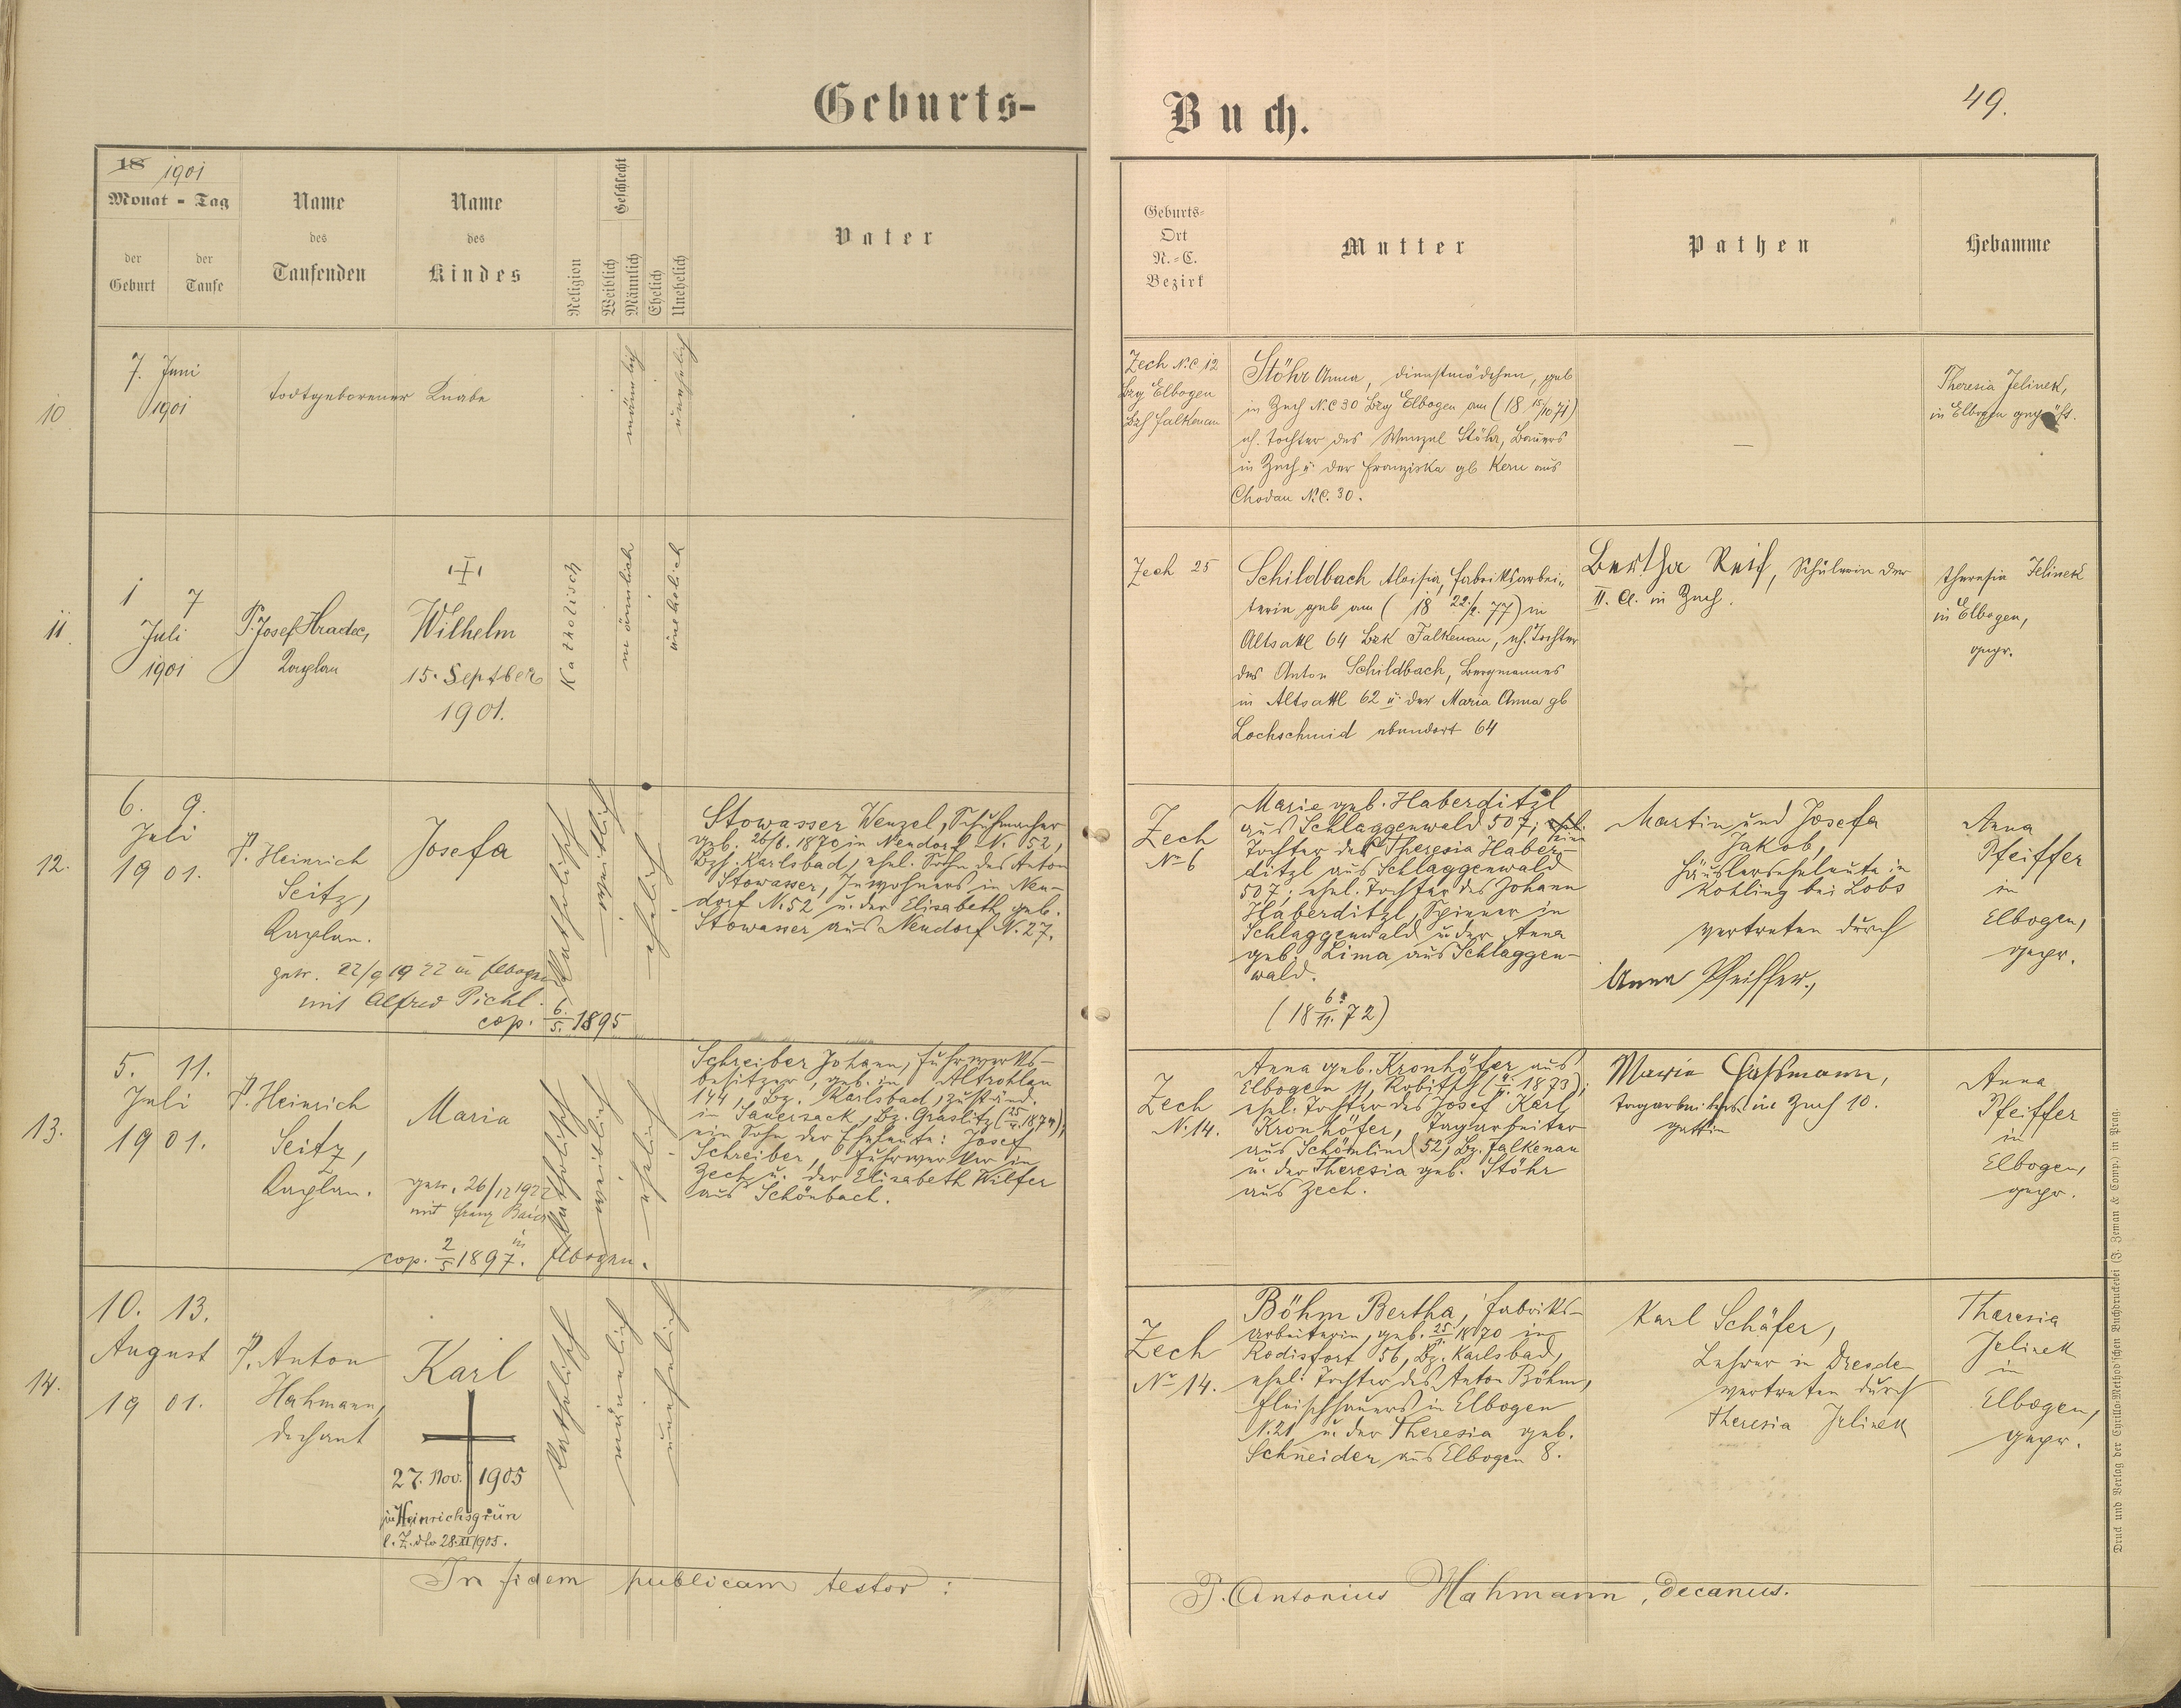 Geburts-
Buch.
49.
18 1901
Monat - Tag
der Geburt
der Taufe
Name des Taufenden
Name des Kindes
Religion
Geschlecht
Weiblich
Männlich
Ehelich
Unehelich
Vater
Geburts-
Ort
N.-C.
Bezirk
Mutter
Pathen
Hebamme
10
7. Juni
1901
todtgeborener Knabe
männlich
unehelich
Zech N.C 12
Bzg Elbogen
Bzh Falkenau
Stöhr Anna, Dienstmädchen, geb
in Zech N.C 30 Bzg Elbogen am (18 15/10 71)
eh. Tochter des Wenzel Stöhr, Bauers
in Zech u. der Franziska gb Kern aus
Chodau N.C. 30.
—
Theresia Jelinek,
in Elbogen geprüft.
11
1 7
Juli
1901
P. Josef Hradec,
Kaplan
Wilhelm
15. Septber
1901.
Katholisch
männlich
unehelich
Zech 25
Schildbach Aloisia, Fabriksarbei-
terin geb am (18 22/2. 77) in
Altsattl 64 Bzk Falkenau, eh. Tochter
des Anton Schildbach, Bergmannes
in Altsattl 62 u. der Maria Anna gb
Lochschmid ebendort 64
Bertha Reif, Schülerin der
II. Cl. in Zech.
Theresia Jelinek
in Elbogen,
gepr.
12.
6. 9.
Juli
1901.
P. Heinrich
Seitz,
Kaplan.
Josefa
getr. 22/9 1922 in Elbogen
mit Alfred Pichl.
cop. 6./5. 1895
Katholisch
weiblich
ehelich
Stowasser Wenzel, Schuhmacher
geb. 26/6. 1870 in Neudorf N. 52,
Bzh. Karlsbad, ehel. Sohn des Anton
Stowasser, Inwohners in Neu-
dorf N. 52 u. der Elisabeth geb.
Stowasser aus Neudorf N. 27.
Zech
No 6
Marie geb. Haberditzl
aus Schlaggenwald 507;
Tochter der Theresia Haber-
ditzl aus Schlaggenwald
507; ehel. Tochter des Johann
Haberditzl, Spinner in
Schlaggenwald u. der Anna
geb. Lima aus Schlaggen-
wald.
(18 6./11. 72)
Martin und Josefa
Jakob,
Häuslerseheleute in
Kohling bei Lobs
vertreten durch
Anna Pfeiffer.,
Anna
Pfeiffer
in
Elbogen,
gepr.
13.
5. 11.
Juli
1901.
P. Heinrich
Seitz,
Kaplan.
Maria
getr. 26/12 1922
mit Franz
in
cop. 2/5 1897. Elbogen.
Katholisch
weiblich
ehelich
Schreiber Johann, Fuhrwerks-
besitzer, geb. in Altrohlau
144, Bz. Karlsbad, zuständ.
in Sauersack, Bz. Graslitz
ein Sohn der Eheleute: Josef
Schreiber, Fuhrwerker in
Zech u. der Elisabeth Wilfer
aus Schönbach.
Zech
N. 14.
Anna geb. Kronhöfer aus
Elbogen 11,
ehel. Tochter des Josef Karl
Kronhöfer, Tagarbeiter
aus Schömlind 52, Bz. Falkenau
u. der Theresia geb. Stöhr
aus Zech.
Maria Gassmann,
Tagarbeiters in Zech 10.
gattin
Anna
Pfeiffer
in
Elbogen,
gepr.
14.
10. 13.
August
1901.
P. Anton
Hahmann,
Dechant
Karl
27. Nov. 1905
in Heinrichsgrün
l. Z. dto 28. XI 1905.
Katholisch
männlich
unehelich
Zech
No 14.
Böhm Bertha, Fabriks-
arbeiterin, geb. 1870 in
Rodisfort 56, Bz. Karlsbad,
ehel. Tochter des Anton Böhm,
Fleischhauers in Elbogen
N. 21 u. der Theresia geb.
Schneider aus Elbogen 8.
Karl Schäfer,
Lehrer in
vertreten durch
Theresia Jelinek
Theresia
Jelinek
in
Elbogen,
gepr.
In fidem publicam testor:
P. Antonius Hahmann, decanus.
Druck und Verlag der Cyrillo-Method'schen Buchdruckerei (J. Zeman & Comp.) in Prag.